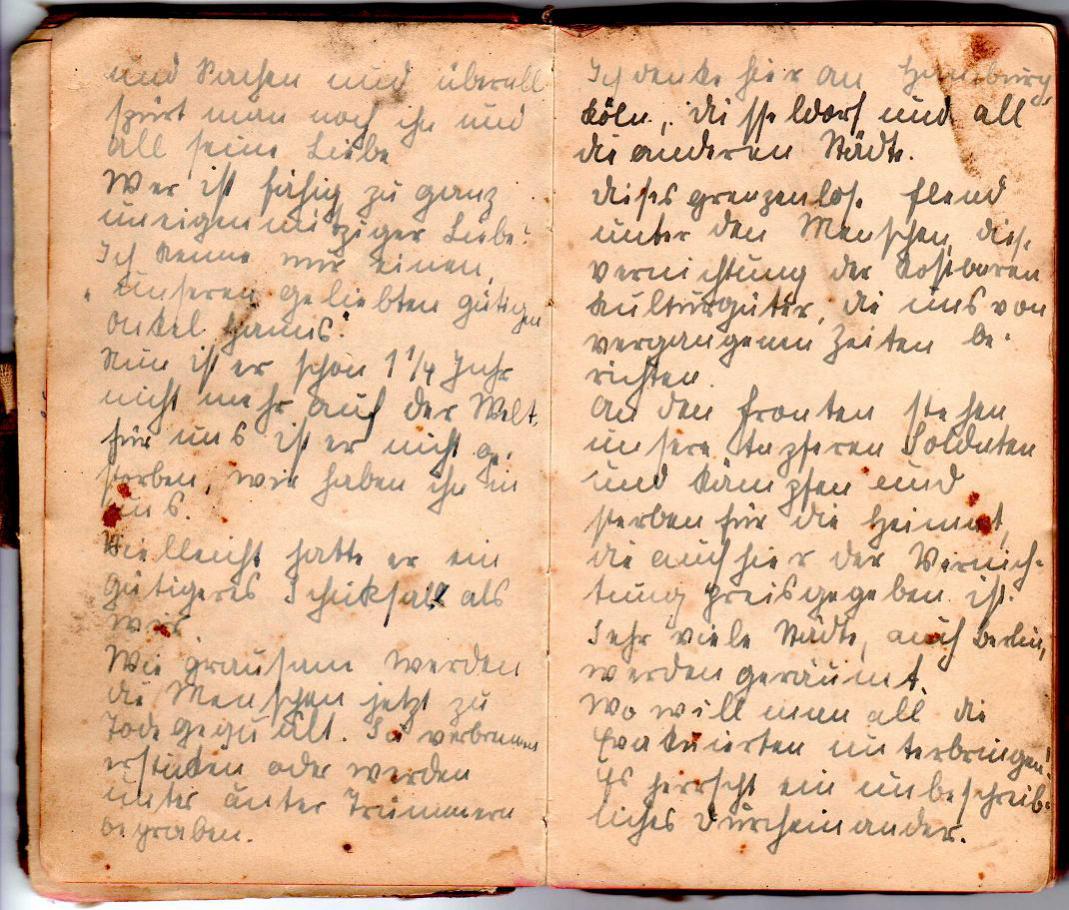 und Sachen und überall
spürt man noch ihn und
all seine Liebe
Wer ist fähig zu ganz
uneigennütziger Liebe?
Ich kenne nur einen,
"unseren geliebten gütigen
Onkel Hanns".
Nun ist er schon 1 1/4 Jahr
nicht mehr auf der Welt,
für uns ist er nicht ge-
storben, wir haben ihn in
uns.
Vielleicht hatte er ein
gütigeres Schicksal als
wir.
Wie grausam werden
die Menschen jetzt zu
Tode gequält. Sie verbrennen
ersticken oder werden
unter unter Trümmern
begraben.
Ich denke hier an Hamburg,
Köln, Düsseldorf und all
die anderen Städte.
Dieses grenzenlose Elend
unter den Menschen, diese
Vernichtung der kostbaren
Kulturgüter, die uns von
vergangenen Zeiten be-
richten.
An den Fronten stehen
unsere tapferen Soldaten
und kämpfen und
sterben für die Heimat,
die auch hier der Vernich-
tung preisgegeben ist.
Sehr viele Städte, auch Berlin,
werden geräumt.
Wo will man all die
Evakuierten unterbringen!
Es herrscht ein unbeschreib-
liches Durcheinander.